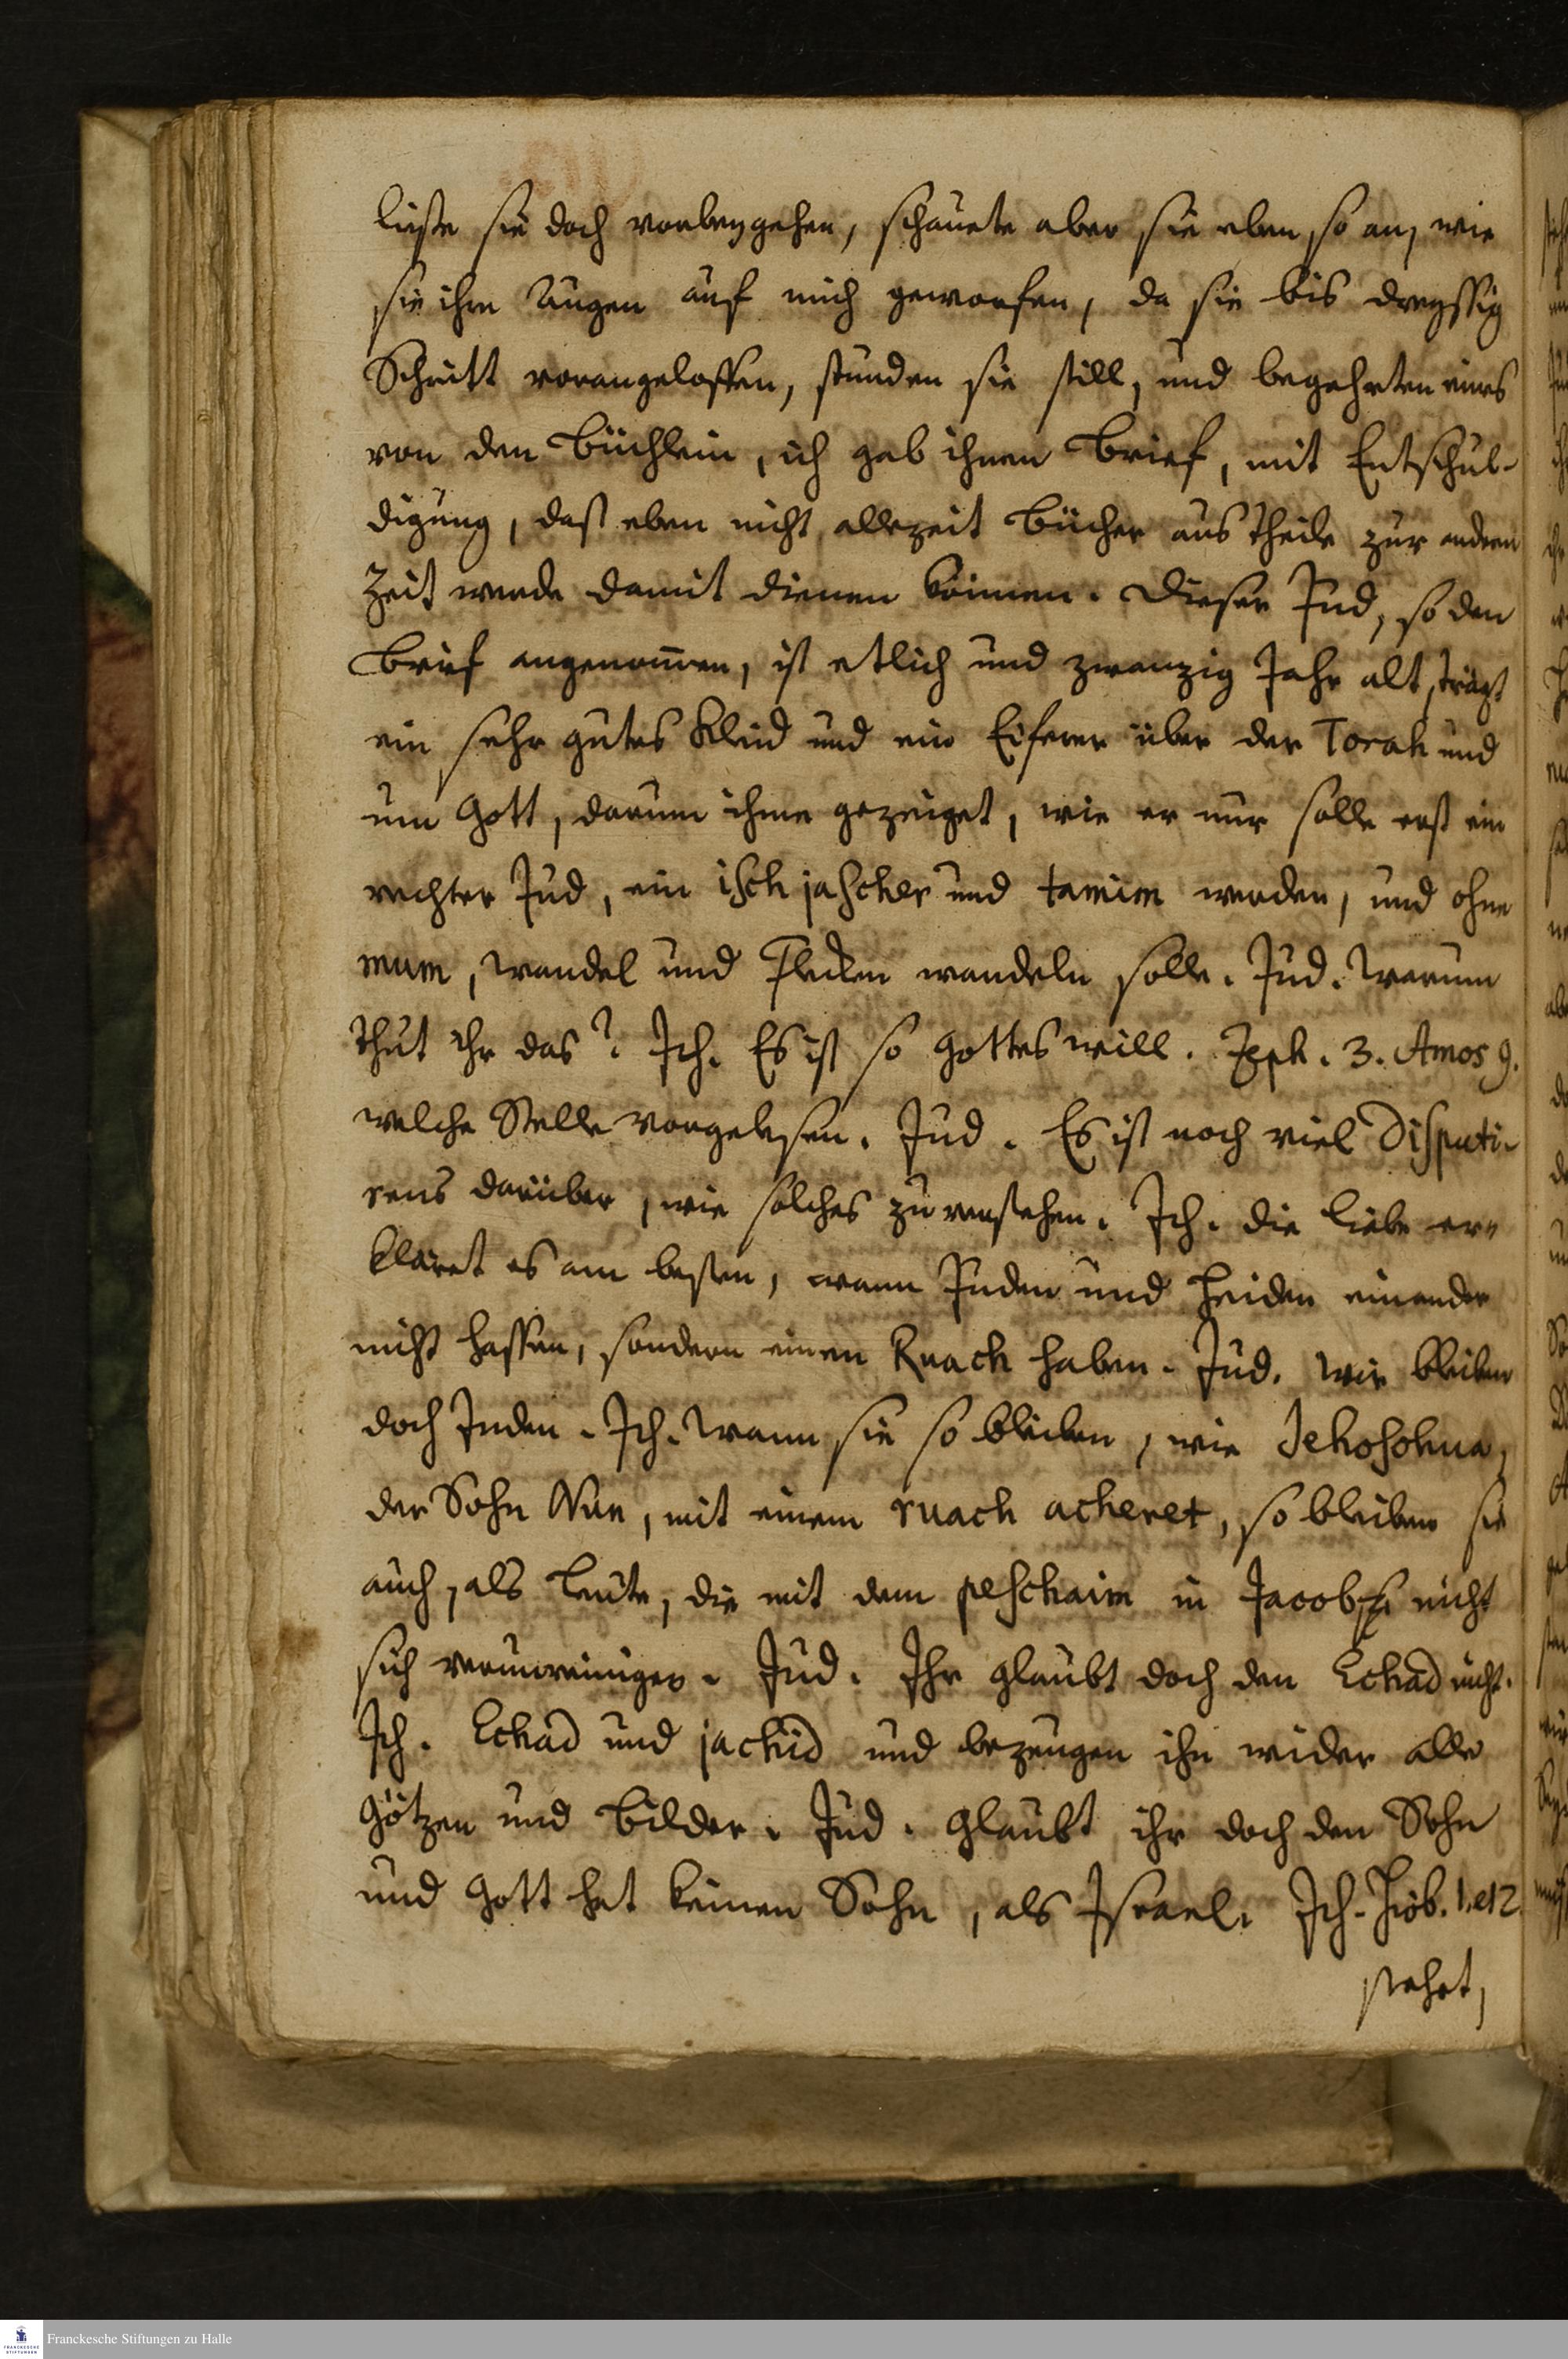 ließe sie doch vorbey gehen, schauete aber sie eben so an, wie
sie ihre Augen auf mich geworfen, da sie bis dreyssig
Schritt vorangeloffen, stunden sie still, und begehrten eines
von den Büchlein, ich gab ihnen Brief, mit Entschul-
digung, daß eben nicht allezeit Bücher austheile zur andern
Zeit werde damit dienen können. Dieser Jud, so den
Brief angenom̄en, ist etlich und zwanzig Jahr alt, trägt
ein sehr gutes Kleid und ein Eiferer über der Torah und
um Gott, darum ihme gezeiget, wie er nur solle erst ein
rechter Jud, ein isch jascher und tamim werden, und ohne
mum, Wandel und Flecken wandeln solle. Jud. Warum
thut ihr das? Ich. Es ist so Gottes will. Zeph. 3. Amos 9.
welche Stelle vorgelesen. Jud. Es ist noch viel Disputi-
rens darüber, wie solches zu verstehen. Ich. die Liebe er-
kläret es am besten, wann Juden und Heiden einander
nicht hassen, sondern einen Ruach haben. Jud. Wir bleiben
doch Juden. Ich. Wann sie so bleiben, wie Jehoschua,
der Sohn Nun, mit einem ruach acheret, so bleiben sie
auch, als Leute, die mit dem peschaim in Jacob nicht
sich verunreinigen. Jud. Ihr glaubt doch den Echad nicht.
Ich. Echad und jachid und bezeugen ihn wider alle
Götzen und Bilder. Jud. Glaubt ihr doch den Sohn
und Gott hat keinen Sohn, als Israel. Ich. Hiob. 1. et 2.
stehet,
Franckesche Stiftungen zu Halle